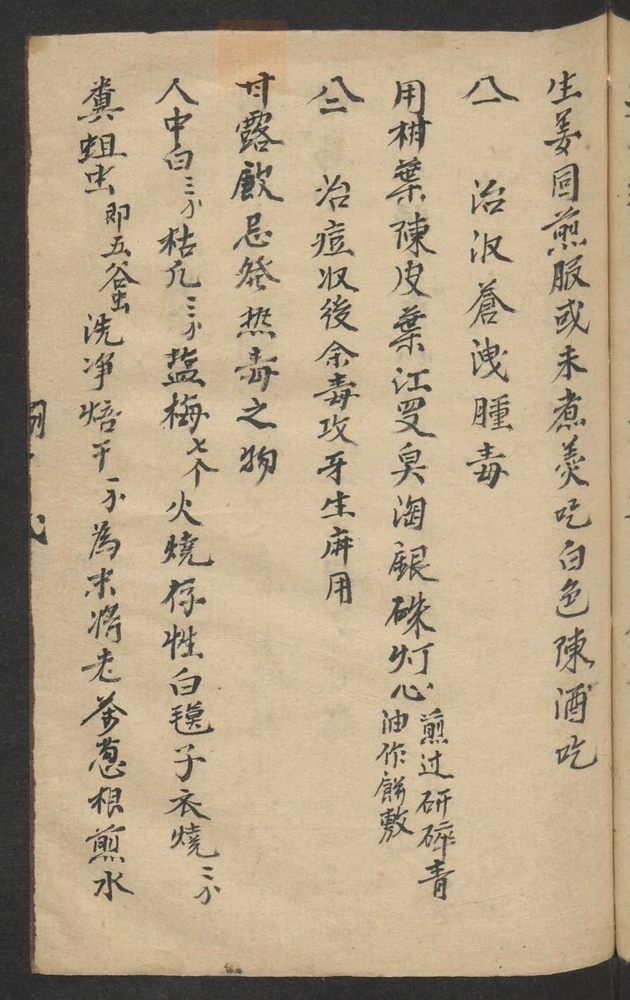 生姜同煎服或未煮羹吃白色陳酒吃
八一 治汊蒼洩腫毒
用柑葉陳皮葉江叉臭淘銀硃灯心煎过研碎青油作餅敷
八二 治痘収後余毒攻牙生麻用
甘露飲忌發燃毒之物
人中白三分枯凡三分盐梅七个火燒存性白毯子衣燒二分
糞蛆虫即五谷虫洗净焙干一分為末将老茶葱根煎水